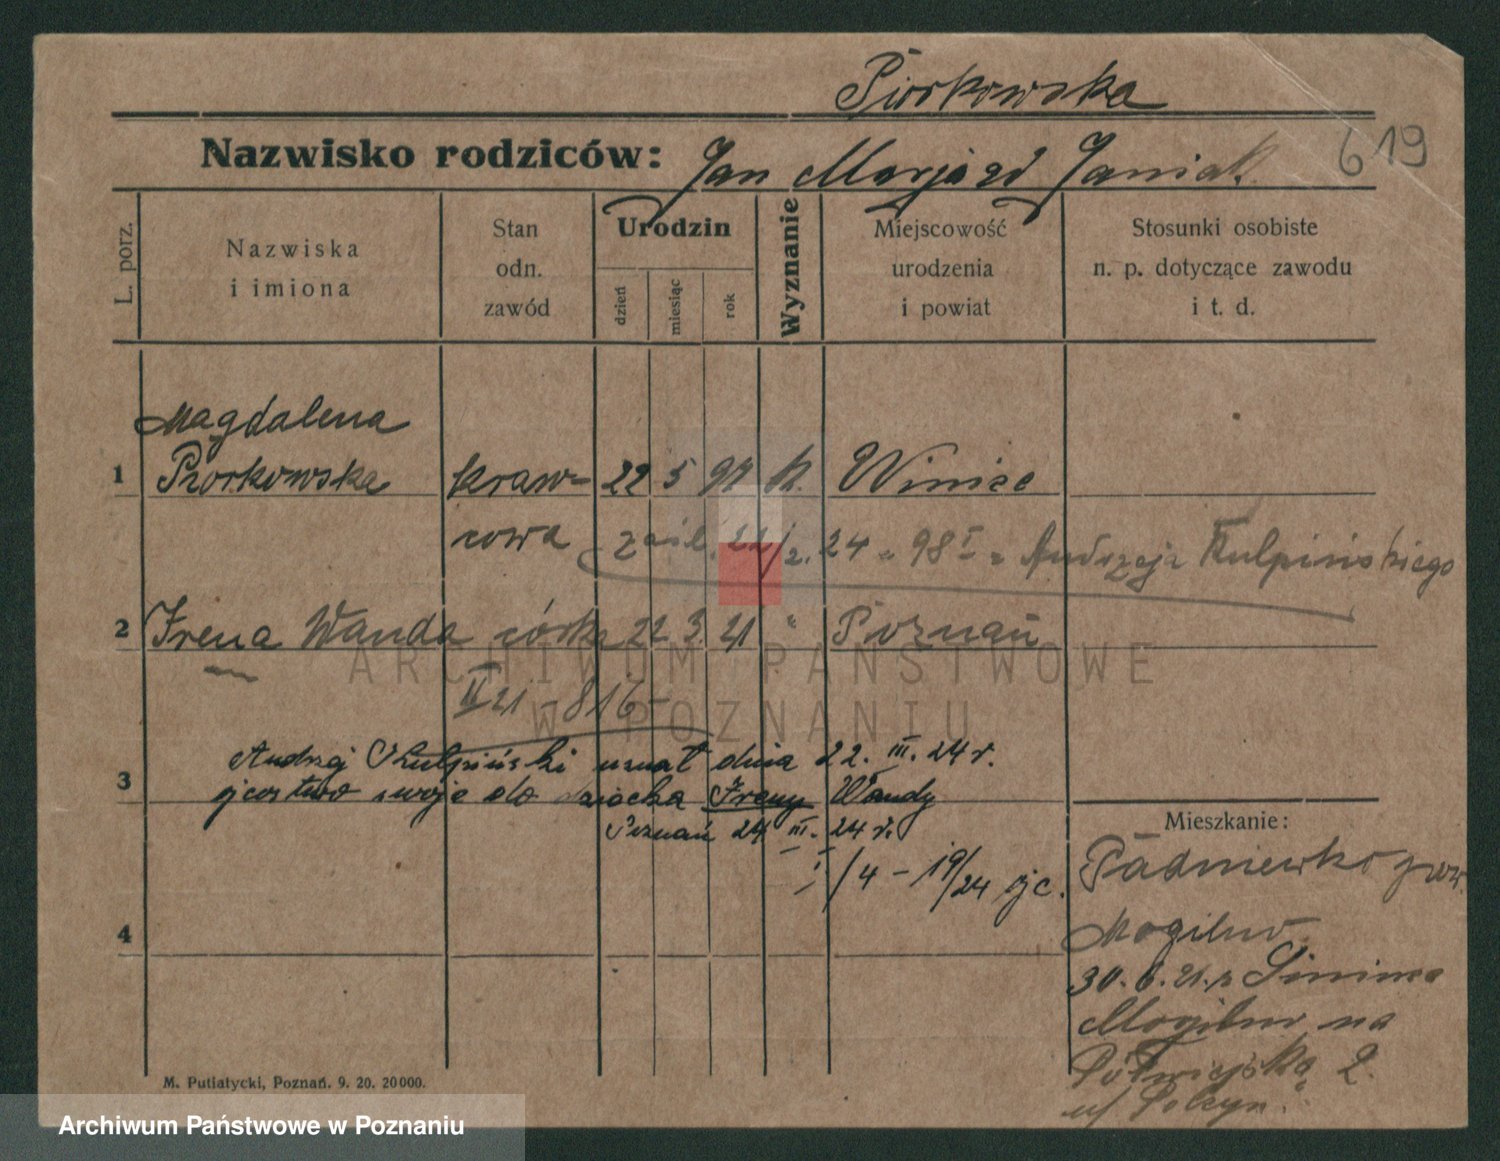 Piorkowska
Nazwisko rodziców: Jan Marja zd Janiak
619
L. porz.
Nazwiska i imiona
Stan odn. zawód
Urodzin
dzień
miesiąc
rok
Wyznanie
Miejscowość urodzenia i powiat
Stosunki osobiste n. p. dotyczące zawodu i t. d.
Magdalena
1 Piorkowska kraw- 22 5 97 k. Winiec
cowa zaśl. 22/2. 24 - 98 I - Andrzeja Kulpińskiego
2 Irena Wanda córka 22 3. 21 " Poznań
II 21 - 816 -
Andrzej Kulpiński uznał dnia 22. III. 24 r.
3 ojcostwo swoje do dziecka Ireny Wandy
Poznań 24 III. 24 r.
Mieszkanie:
I/4 - 19/24 ojc.
Padniewko pow.
4
Mogilno
30.6.21. z
Mogilno na
Półwiejską 2.
M. Putiatycki, Poznań. 9. 20. 20000.
ARCHIWUM PAŃSTWOWE
W POZNANIU
Archiwum Państwowe w Poznaniu